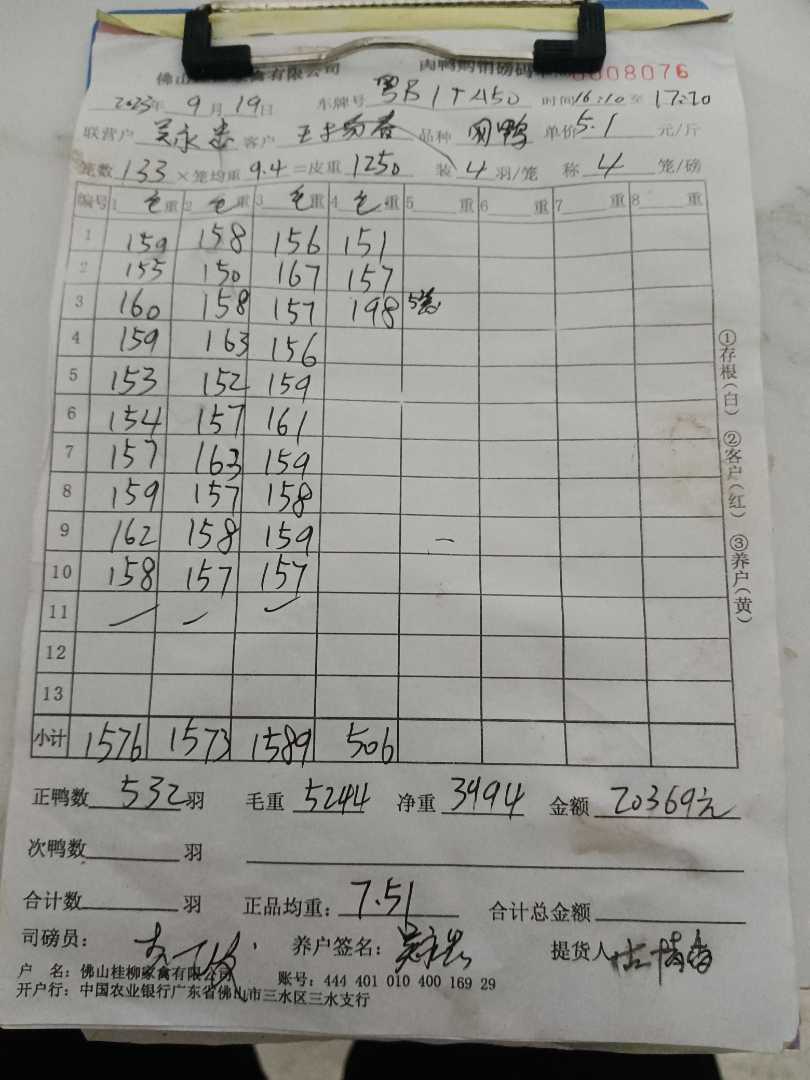 佛山桂柳家禽有限公司 肉鸭购销磅码单 0008076
2023年 9月 19日 车牌号 粤B1T450 时间16:10至17:20
联营户 吴永 客户 品种 肉鸭 单价5.1 元/斤
笼数 133 ×笼均重 9.4 =皮重 1250 装 4 羽/笼 称 4 笼/磅
编号 1 毛重 2 毛重 3 毛重 4 毛重 5 重 6 重 7 重 8 重
1 159 158 156 151
2 155 150 167 157
3 160 158 157 198 5笼
4 159 163 156
5 153 152 159
6 154 157 161
7 157 163 159
8 159 157 158
9 162 158 159
10 158 157 157
11
12
13
小计 1576 1573 1589 506
正鸭数 532 羽 毛重 5244 净重 3994 金额 20369元
次鸭数 羽
合计数 羽 正品均重: 7.51 合计总金额
司磅员: 养户签名: 提货人
户 名: 佛山桂柳家禽有限公司 账号: 444 401 010 400 169 29
开户行: 中国农业银行广东省佛山市三水区三水支行
①存根(白) ②客户(红) ③养户(黄)